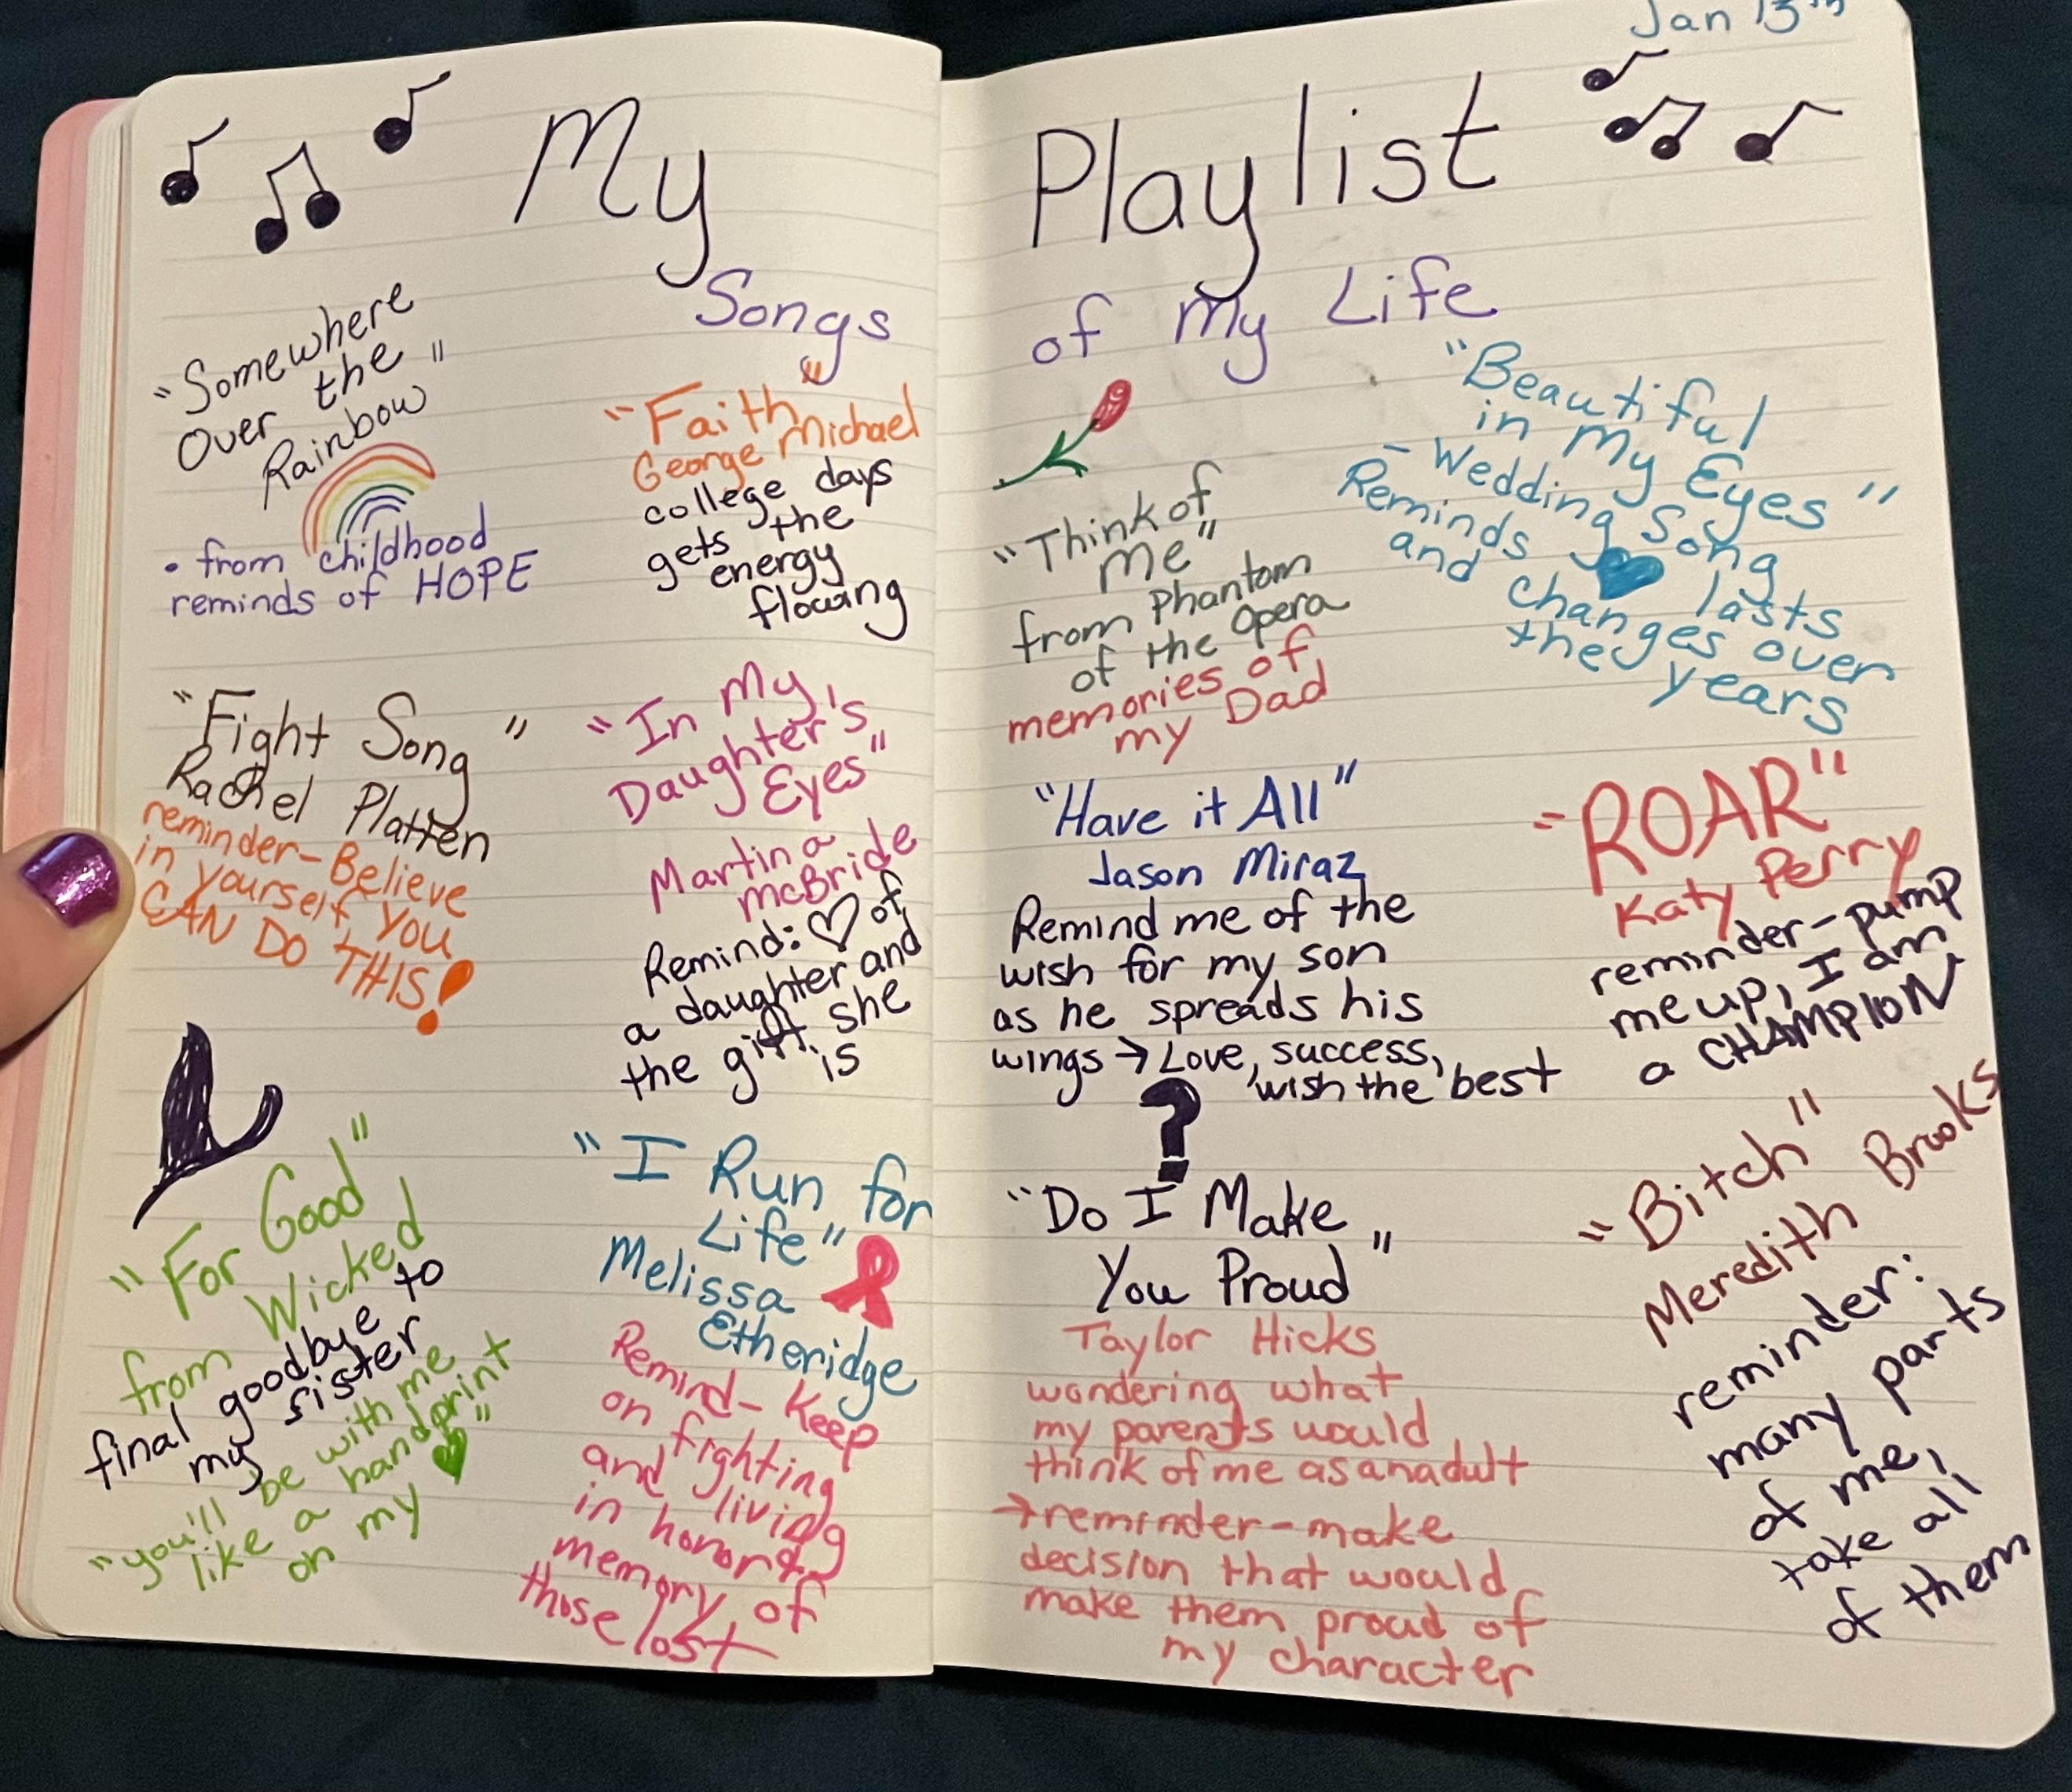 Jan 13th
My Playlist
Songs of My Life
"Somewhere
Over the "
Rainbow
• from childhood
reminds of HOPE
"Faith"
George Michael
college days
gets the
energy
flowing
"Fight Song "
Rachel Platten
reminder- Believe
in yourself you
CAN DO THIS!
"In My
Daughter's
Eyes"
Martina
McBride
Remind: ♡ of
a daughter and
the gift she
is
"For Good"
from Wicked
final goodbye to
my sister
"you'll be with me
like a handprint
on my ♥"
"I Run for
Life"
Melissa
Etheridge
Remind- Keep
on fighting
and living
in honor &
memory of
those lost
"Think of
me"
from Phantom
of the Opera
memories of
my Dad
"Beautiful
in My Eyes"
- Wedding Song
Reminds ♥ lasts
and changes over
the years
"Have it All"
Jason Miraz
Remind me of the
wish for my son
as he spreads his
wings → Love, success,
wish the best
"ROAR"
Katy Perry
reminder-pump
me up, I am
a CHAMPION
?
"Do I Make
You Proud"
Taylor Hicks
wondering what
my parents would
think of me as an adult
→ reminder-make
decision that would
make them proud of
my character
"Bitch"
Meredith Brooks
reminder:
many parts
of me,
take all
of them